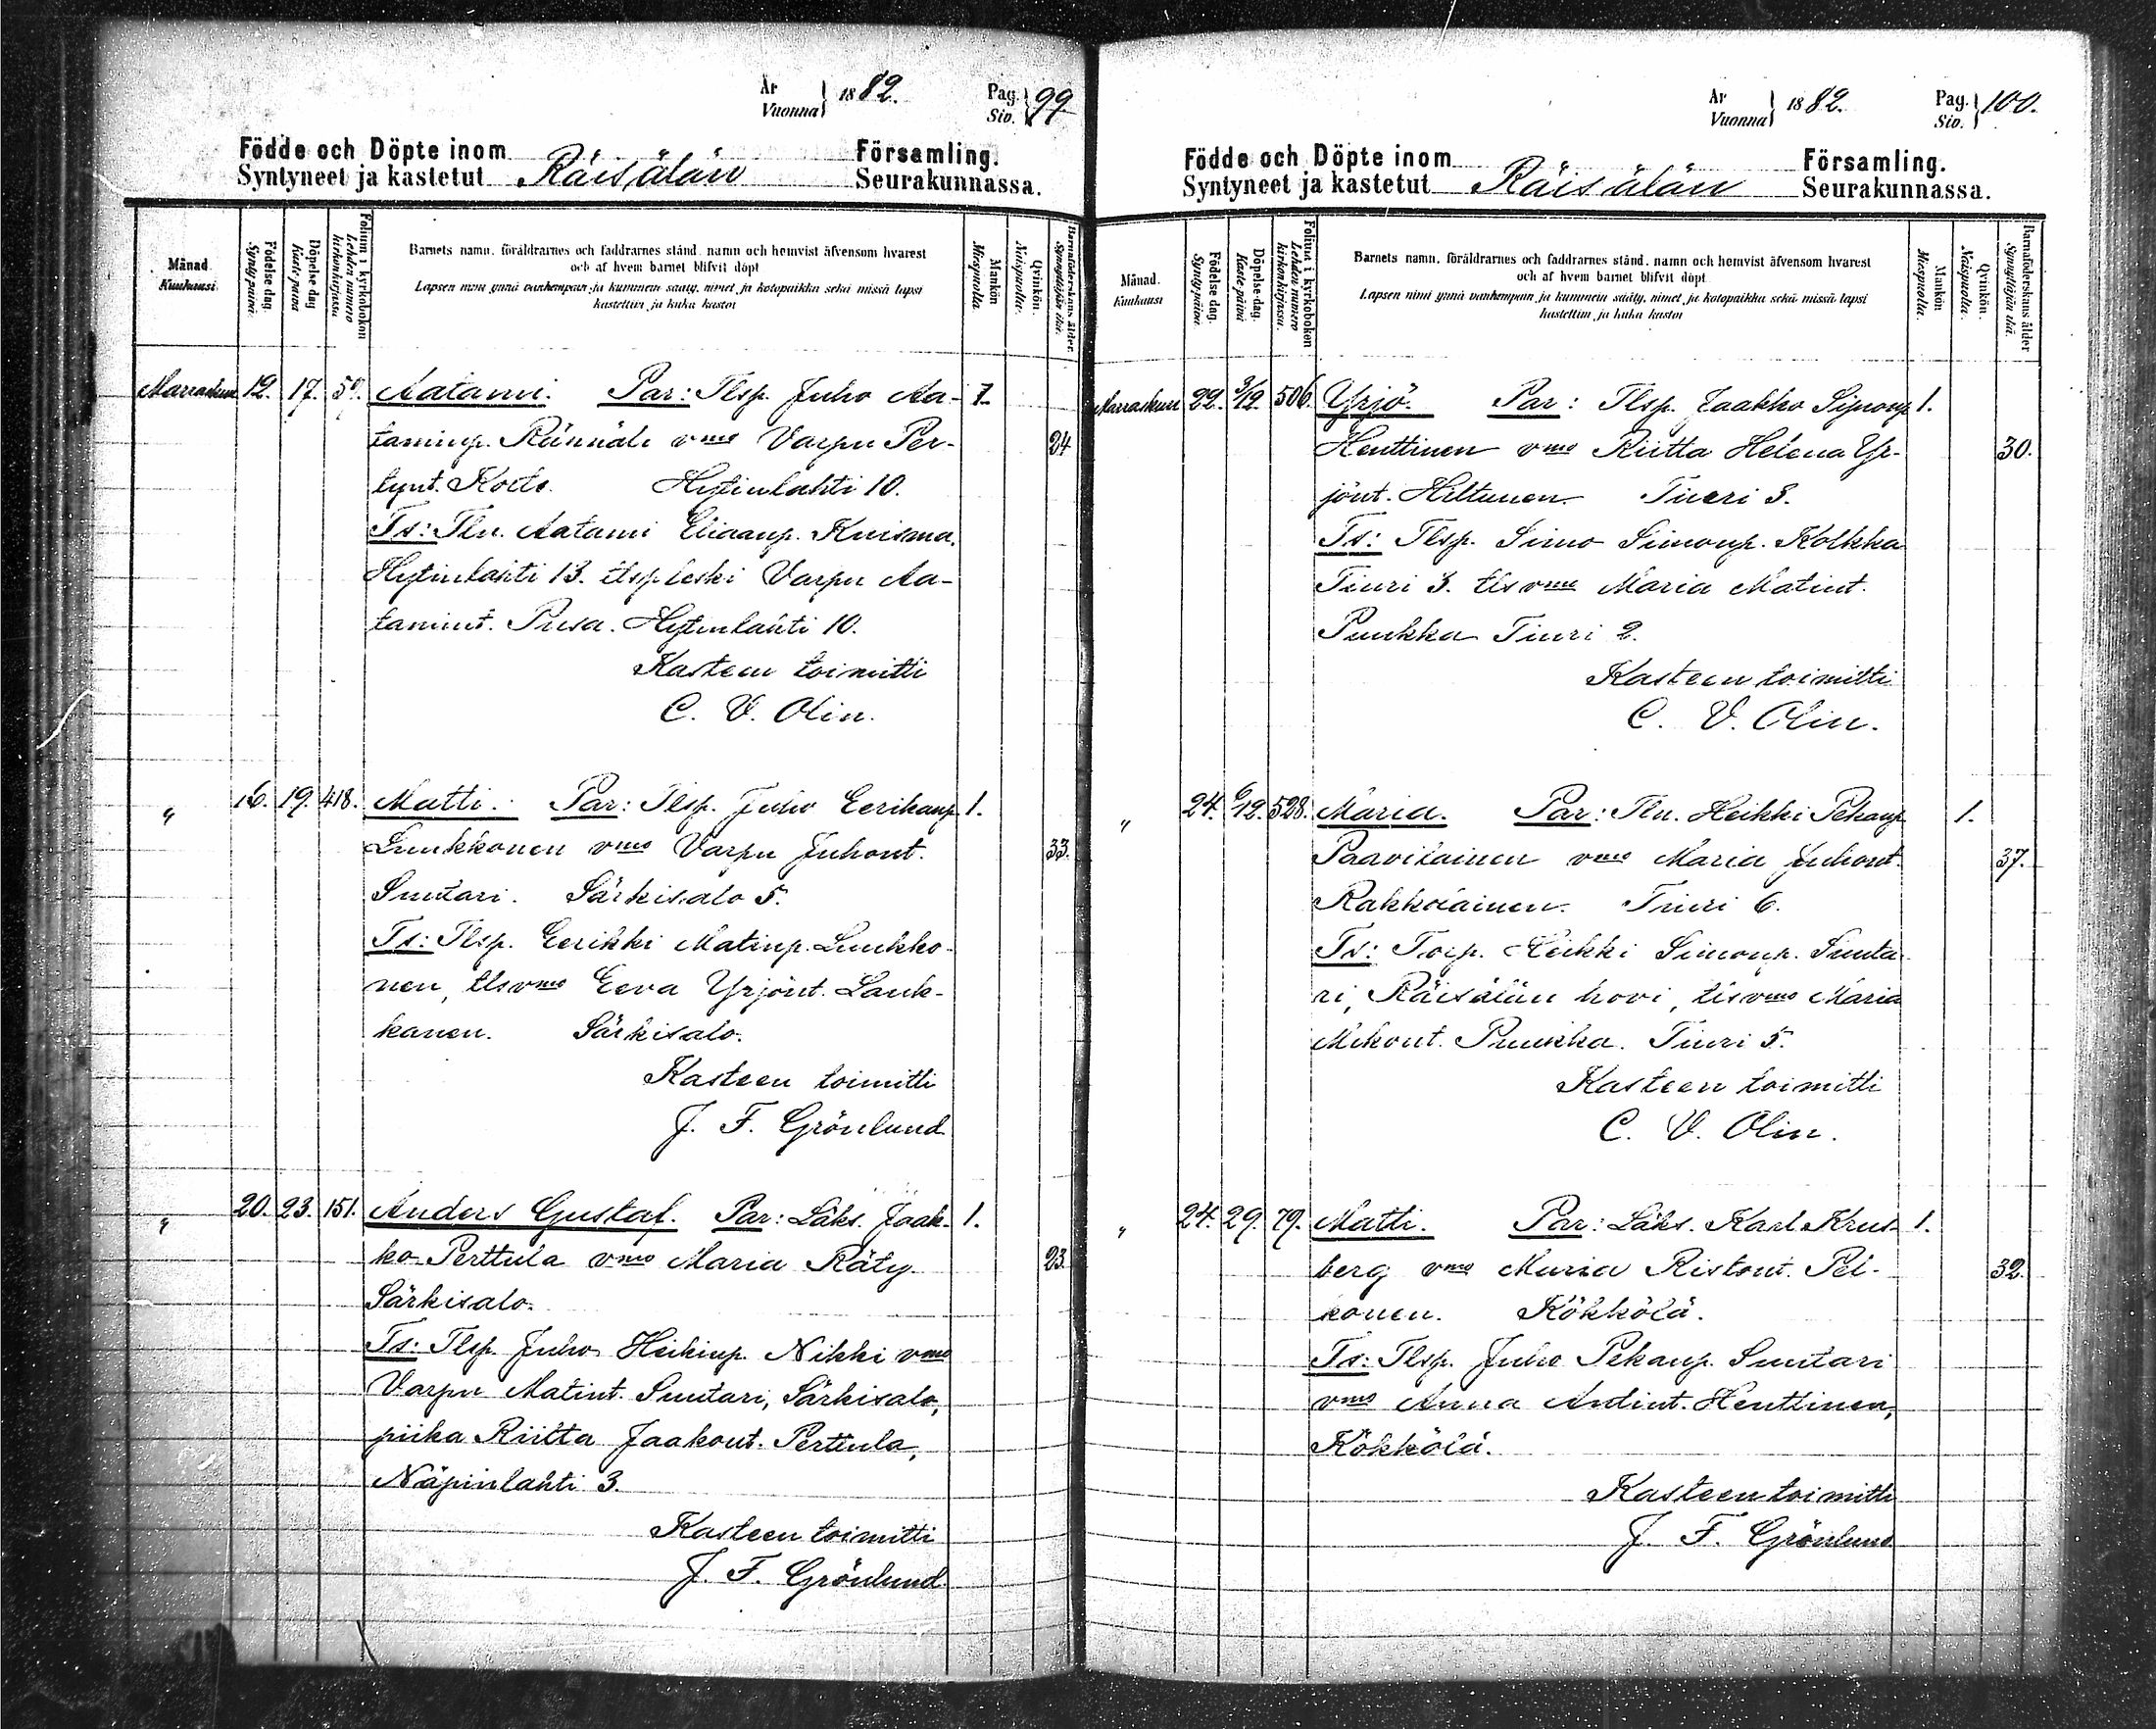 År
Vuonna 1882.
Pag.
Siv. 99
Födde och Döpte inom Församling.
Syntyneet ja kastetut Räisälän Seurakunnassa.
Månad.
Kuukausi.
Födelse dag.
Syntypäivä.
Döpelse dag
Kaste päivä
Folium i kyrkoboken
Lehden numero
kirkonkirjassa
Barnets namn, föräldrarnes och faddrarnes stånd, namn och hemvist äfvensom hvarest
och af hvem barnet blifvit döpt
Lapsen nimi ynnä vanhempain ja kummein sääty, nimet ja kotopaikka sekä missä lapsi
kastettiin ja kuka kastoi
Mankön
Miespuolta
Qvinkön.
Naispuolta.
Barnaföderskans ålder.
Synnyttäjän ikä.
Marraskuu 12. 17. 50. Aatami. Par: Tlsp. Juho Aa- 1.
taminp. Rännäli vmo Varpu Per- 24
tynt. Koets. Hytinlahti 10.
Ts: Tln. Aatami Eliaanp. Kuisma.
Hytinlahti 13. tlsp leski Varpu Aa-
tamint. Pusa. Hytinlahti 10.
Kasteen toimitti
C. V. Olin.
" 16. 19. 418. Matti. Par: Tlsp. Juho Eerikanp. 1.
Luukkonen vmo Varpu Juhont. 33.
Suutari. Särkisalo 5.
Ts: Tlsp. Eerikki Matinp. Luukko-
nen, tlsvmo Eeva Yrjönt. Lauk-
kanen. Särkisalo.
Kasteen toimitti
J. F. Grönlund
" 20. 23. 151. Anders Gustaf. Par: Läks. Jaak- 1.
ko Perttula vmo Maria Räty 23
Särkisalo.
Ts: Tlsp. Juho Heikinp. Nikki vmo
Varpu Matint. Suutari, Särkisalo,
piika Riitta Jaakont. Perttula,
Näpinlahti 3.
Kasteen toimitti
J. F. Grönlund
År
Vuonna 1882.
Pag.
Siv. 100.
Födde och Döpte inom Församling.
Syntyneet ja kastetut Räisälän Seurakunnassa.
Månad.
Kuukausi
Födelse dag.
Synty päivä.
Döpelse dag.
Kaste päivä
Folium i kyrkoboken
Lehden numero
kirkonkirjassa.
Barnets namn, föräldrarnes och faddrarnes stånd, namn och hemvist äfvensom hvarest
och af hvem barnet blifvit döpt.
Lapsen nimi ynnä vanhempain ja kummein sääty, nimet ja kotopaikka sekä missä lapsi
kastettiin ja kuka kastoi
Mankön
Miespuolta.
Qvinkön.
Naispuolta.
Barnaföderskans ålder
Synnyttäjän ikä.
Marraskuu 22. 3/12. 506. Yrjö. Par: Tlsp. Jaakko Simonp 1.
Henttinen vmo Riitta Helena Yr- 30.
jönt. Hiltunen. Tiuri 3.
Ts: Tlsp. Simo Simonp. Kolkka
Tiuri 3. tlsvmo Maria Matint.
Puukka Tiuri 2.
Kasteen toimitti
C. V. Olin.
" 24. 6/12. 528. Maria. Par: Tln. Heikki Pekanp 1.
Paavilainen vmo Maria Juhont. 37.
Rakkolainen. Tiuri 6.
Ts: Torp. Heikki Simonp. Suuta-
ri, Räisälän hovi, tlsvmo Maria
Mikont. Puukka. Tiuri 5.
Kasteen toimitti
C. V. Olin.
" 24. 29. 79. Matti. Par: Läks. Karl Krus- 1.
berg vmo Maria Ristont. Pel- 32.
konen. Kökkölä.
Ts: Tlsp. Juho Pekanp. Suutari
vmo Anna Antint. Henttinen,
Kökkölä.
Kasteen toimitti
J. F. Grönlund